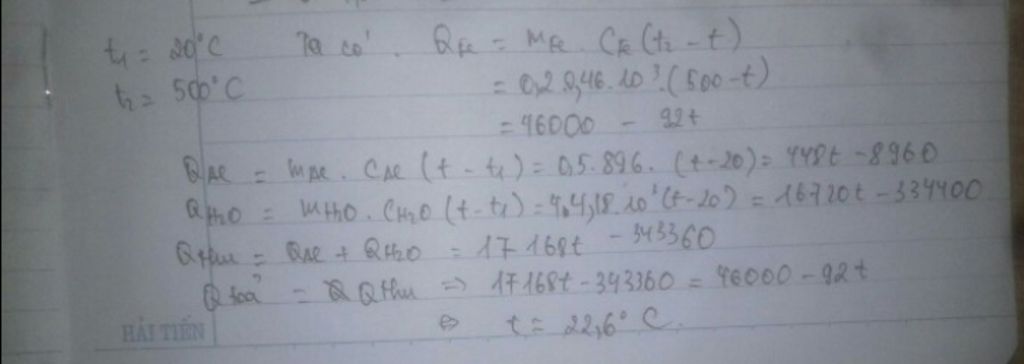 t₁ = 20°C Ta có: Q_Fe = m_Fe . C_Fe (t₂ - t)
t₂ = 500°C = 0,2 0,46.10³.(500 - t)
= 46000 - 92t
Q_Al = m_Al . C_Al (t - t₁) = 0,5.896. (t - 20) = 448t - 8960
Q_H₂O = m_H₂O . C_H₂O (t - t₁) = 4.4,18.10³(t - 20) = 16720t - 334400
Q_thu = Q_Al + Q_H₂O = 17168t - 343360
Q_toả = Q_thu ⇒ 17168t - 343360 = 46000 - 92t
⇔ t = 22,6° C.
HẢI TIẾN